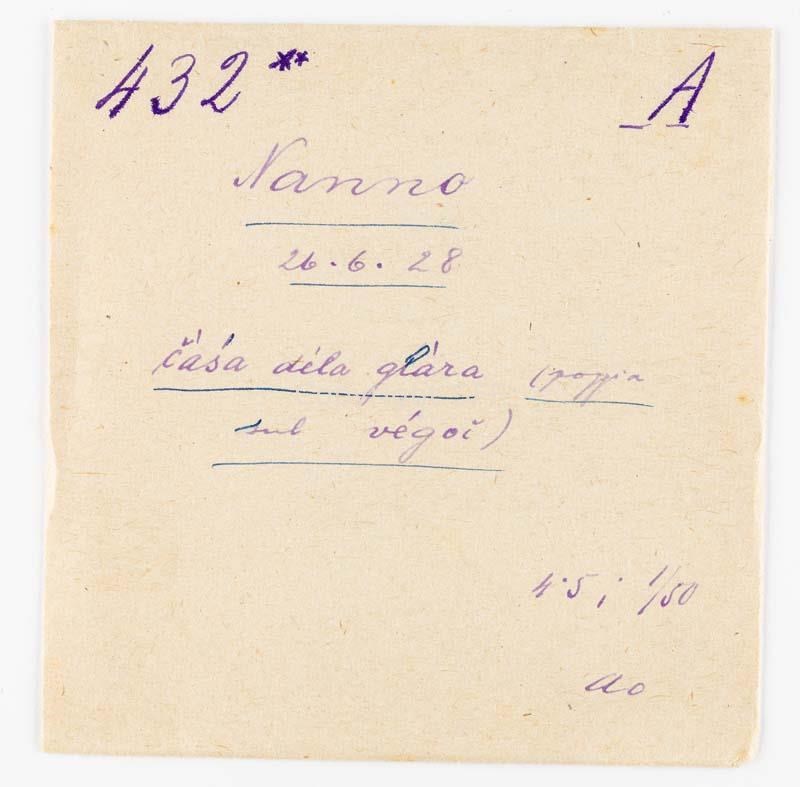 432** A
Nanno
26.6.28
čáśa déla glára (poggia
sul végoi)
4.5; 1/50
ao